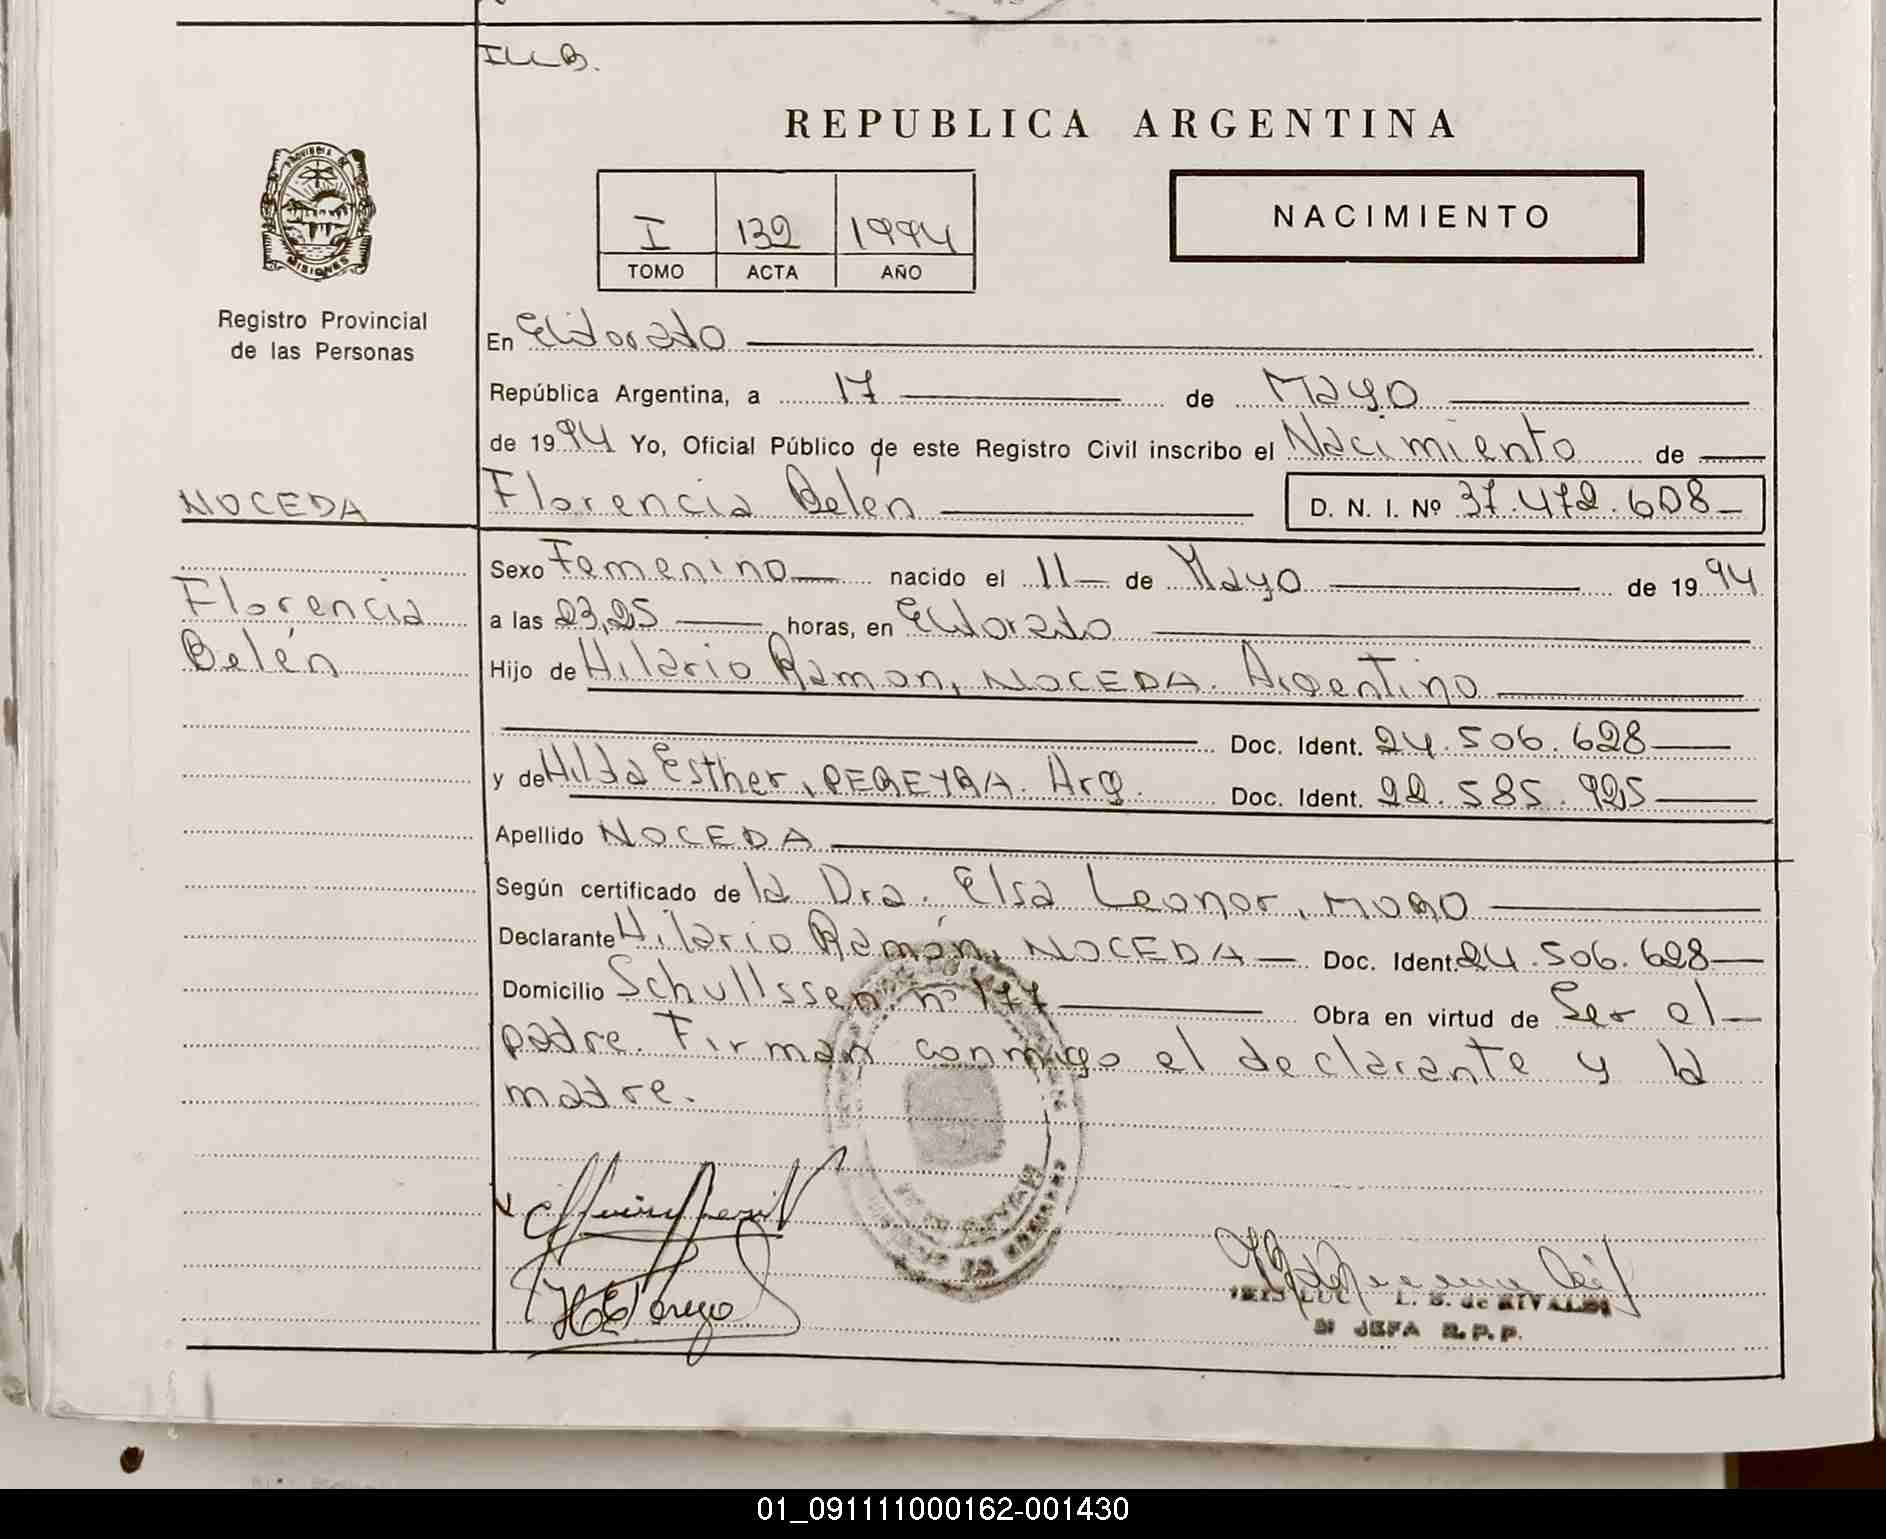 REPUBLICA ARGENTINA
PROVINCIA DE
MISIONES
I 132 1994
TOMO ACTA AÑO
NACIMIENTO
Registro Provincial
de las Personas
En Eldorado
República Argentina, a 17 de Mayo
de 1994 Yo, Oficial Público de este Registro Civil inscribo el Nacimiento de
NOCEDA
Florencia Belén D. N. I. Nº 37.472.608
Florencia
Belén
Sexo Femenino nacido el 11 de Mayo de 1994
a las 23,25 horas, en Eldorado
Hijo de Hilario Ramon, NOCEDA. Argentino
Doc. Ident. 24.506.628
y de Hilda Esther, PEREYRA. Arg. Doc. Ident. 22.585.925
Apellido NOCEDA
Según certificado de la Dra. Elsa Leonor, MORO
Declarante Hilario Ramón, NOCEDA Doc. Ident. 24.506.628
Domicilio Schullssen nº 177 Obra en virtud de Ser el
padre. Firman conmigo el declarante y la
madre.
L. S. de RIVALDI
JEFA R.P.P.
01_091111000162-001430